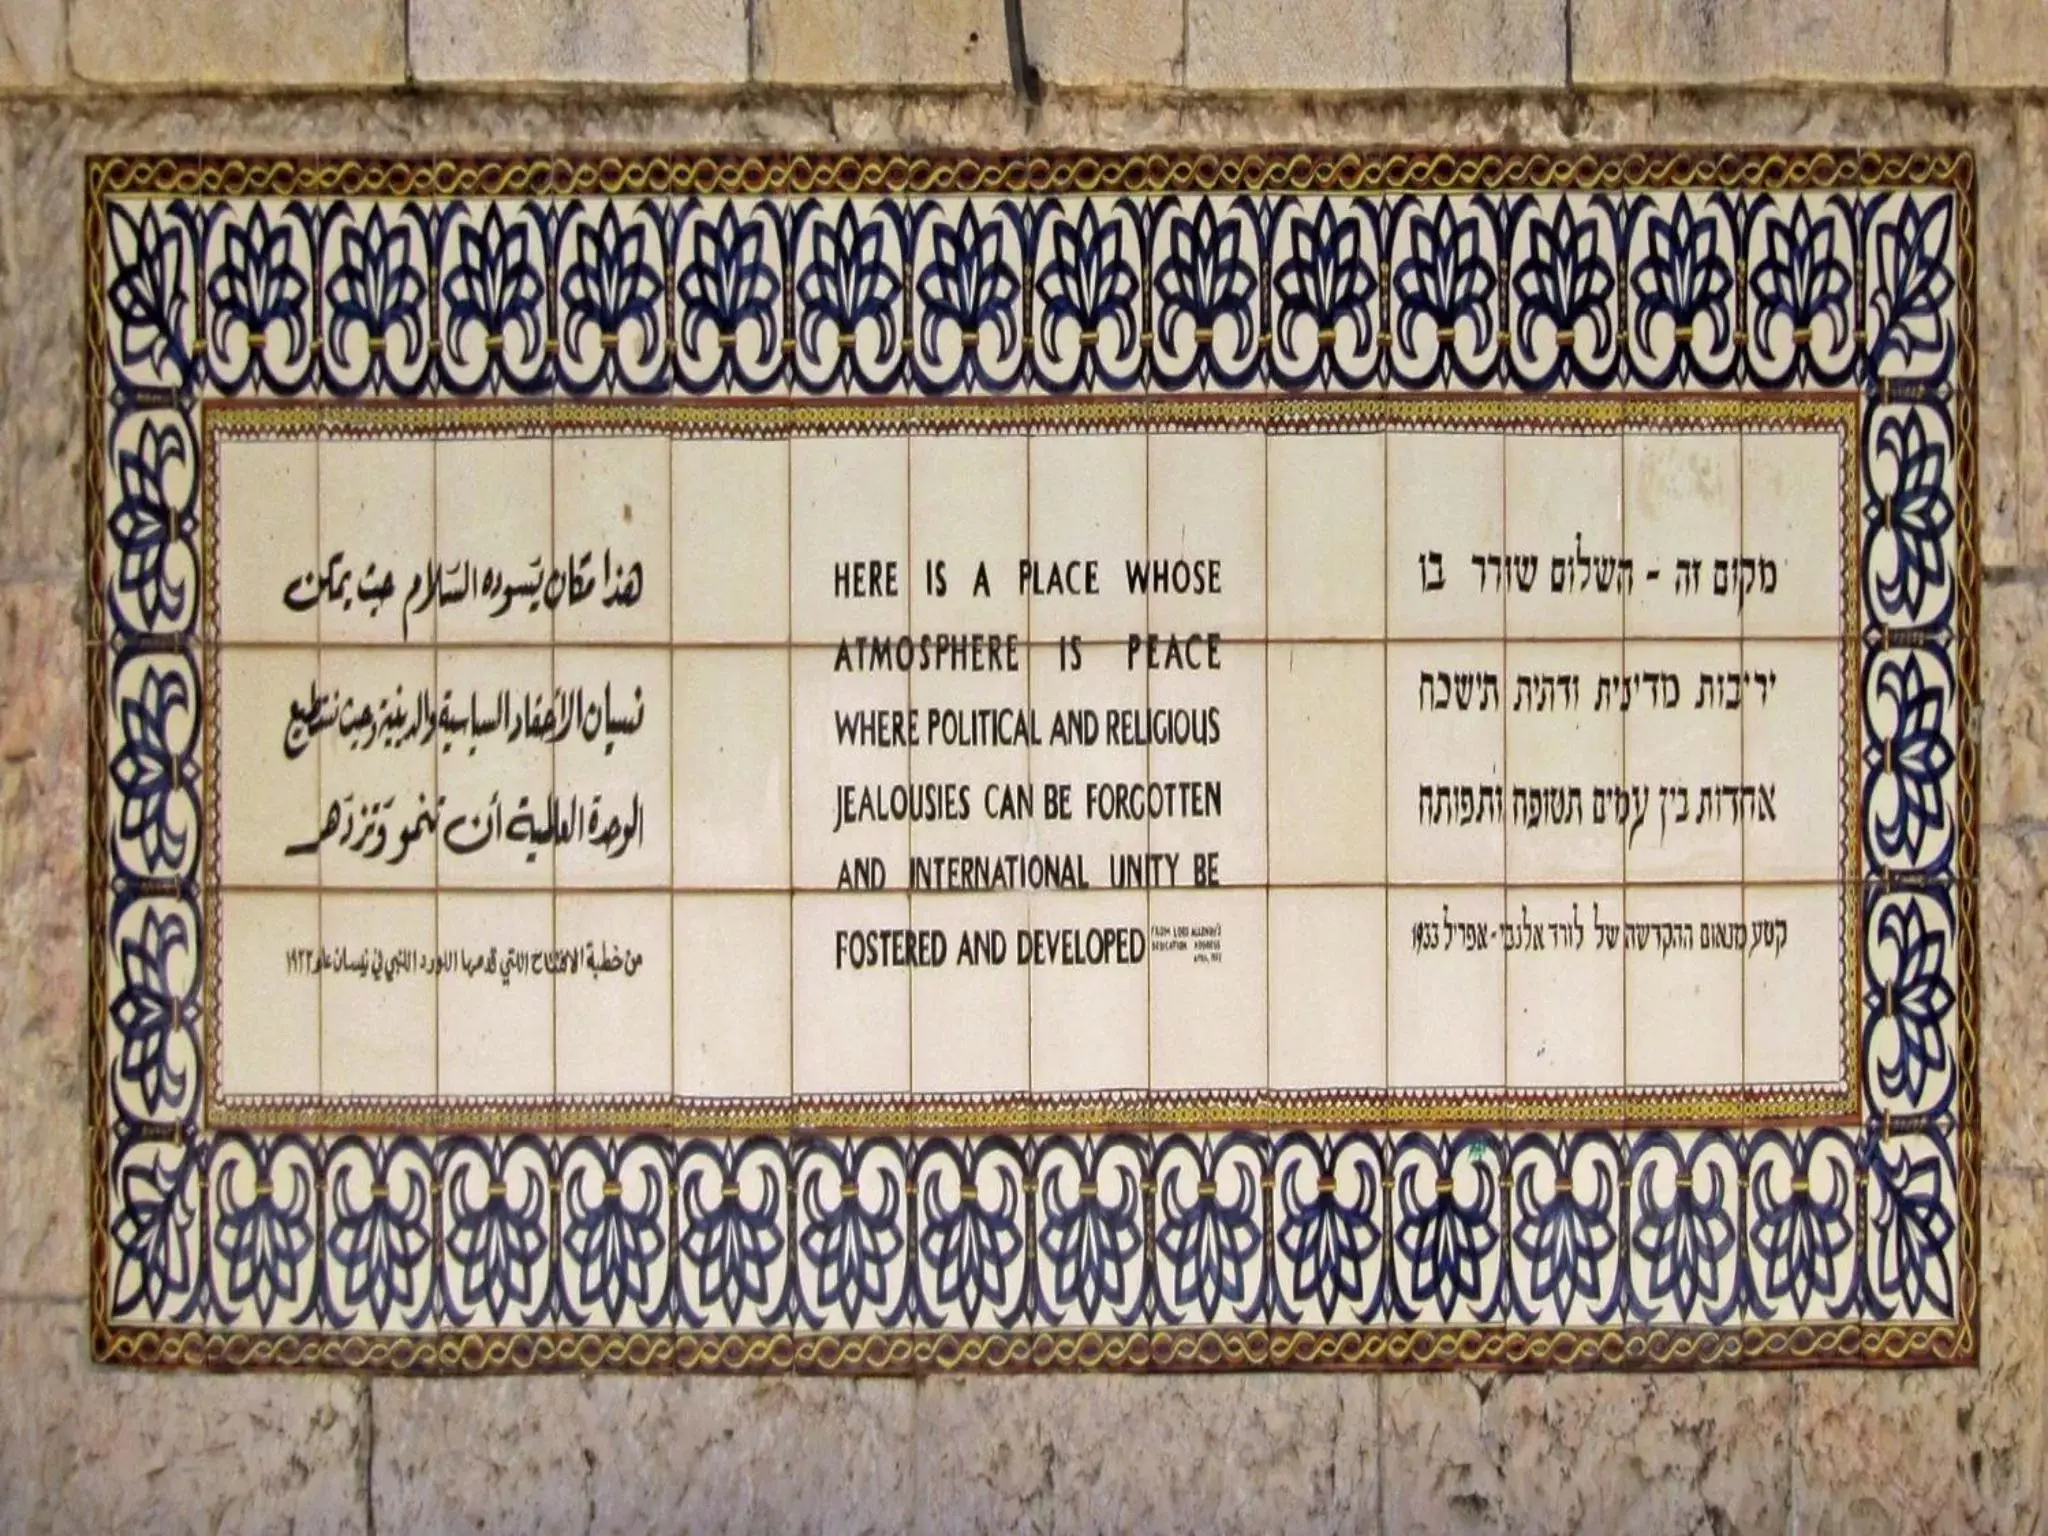 هذا مكان يسوده السّلام حيث يمكن
نسيان الأحقاد السياسية والدينية وحيث نستطيع
الوحدة العالمية أن تنمو وَتزدَهر
من خطبة الافتتاح اللتي قدمها اللورد اللنبي في نيسان عام ١٩٣٣
HERE IS A PLACE WHOSE
ATMOSPHERE IS PEACE
WHERE POLITICAL AND RELIGIOUS
JEALOUSIES CAN BE FORGOTTEN
AND INTERNATIONAL UNITY BE
FOSTERED AND DEVELOPED
FROM LORD ALLENBY'S
DEDICATION ADDRESS
APRIL, 1933
מקום זה - השלום שורר בו
יריבות מדינית ודתית תישכח
אחדות בין עמים תטופח ותפותח
קטע מנאום ההקדשה של לורד אלנבי - אפריל 1933